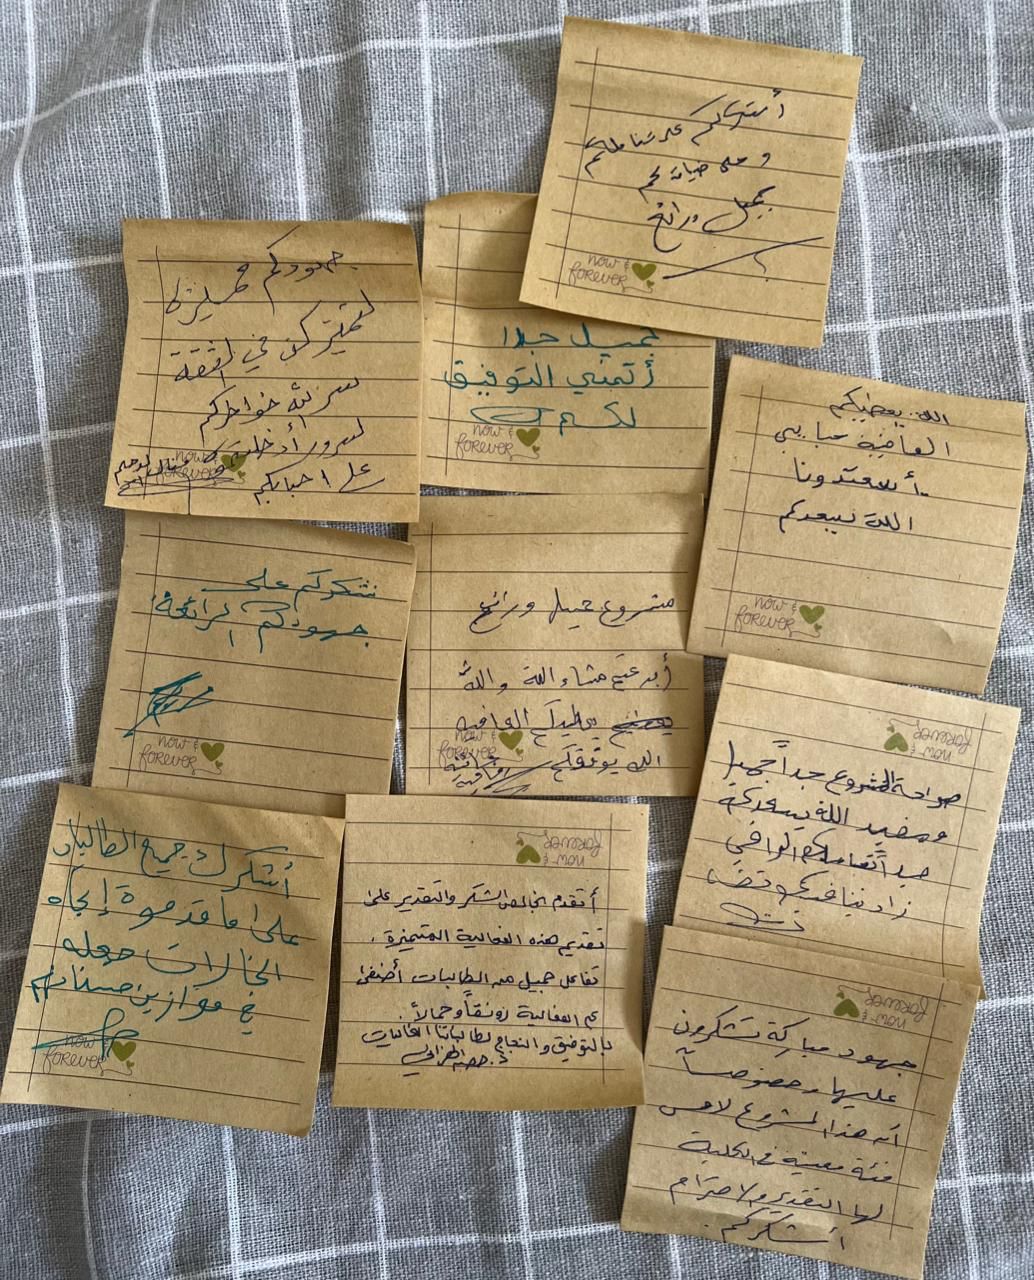 أشكركم على
و على
جميل ورائع
now &
forever
جهودكم مميزة
في
خواطركم
لسرور أدخلت
على أحبابكم
now &
forever
جميل جدا
أتمنى التوفيق
لكم
now &
forever
الله يعطيكم
العافية حبايبي
أسعدتونا
الله يسعدكم
now &
forever
نشكركم على
جهودكم الرائعة
now &
forever
مشروع جميل ورائع
أبدعتم مشاء الله والله
يعطيكم العافيه
الله يوفقكم
now &
forever
now &
forever
صراحة المشروع جداً جميل
ومفيد الله يسعدكم
جداً
now &
forever
أشكر جميع الطالبات
على ما قدموة إتجاه
الحالات جعله
في موازين حسناتهم
now &
forever
now &
forever
أتقدم بخالص الشكر والتقدير على
تقديم هذه الفعالية المتميزة.
تفاعل جميل من الطالبات أضفى
على الفعالية رونقاً وجمالاً.
بالتوفيق والنجاح لطالباتنا الغاليات
now &
forever
جهود مباركة تشكرون
عليها وخصوصاً
أنه هذا المشروع لامس
فئة معينة في الكلية
لها التقدير والاحترام
أشكركم.